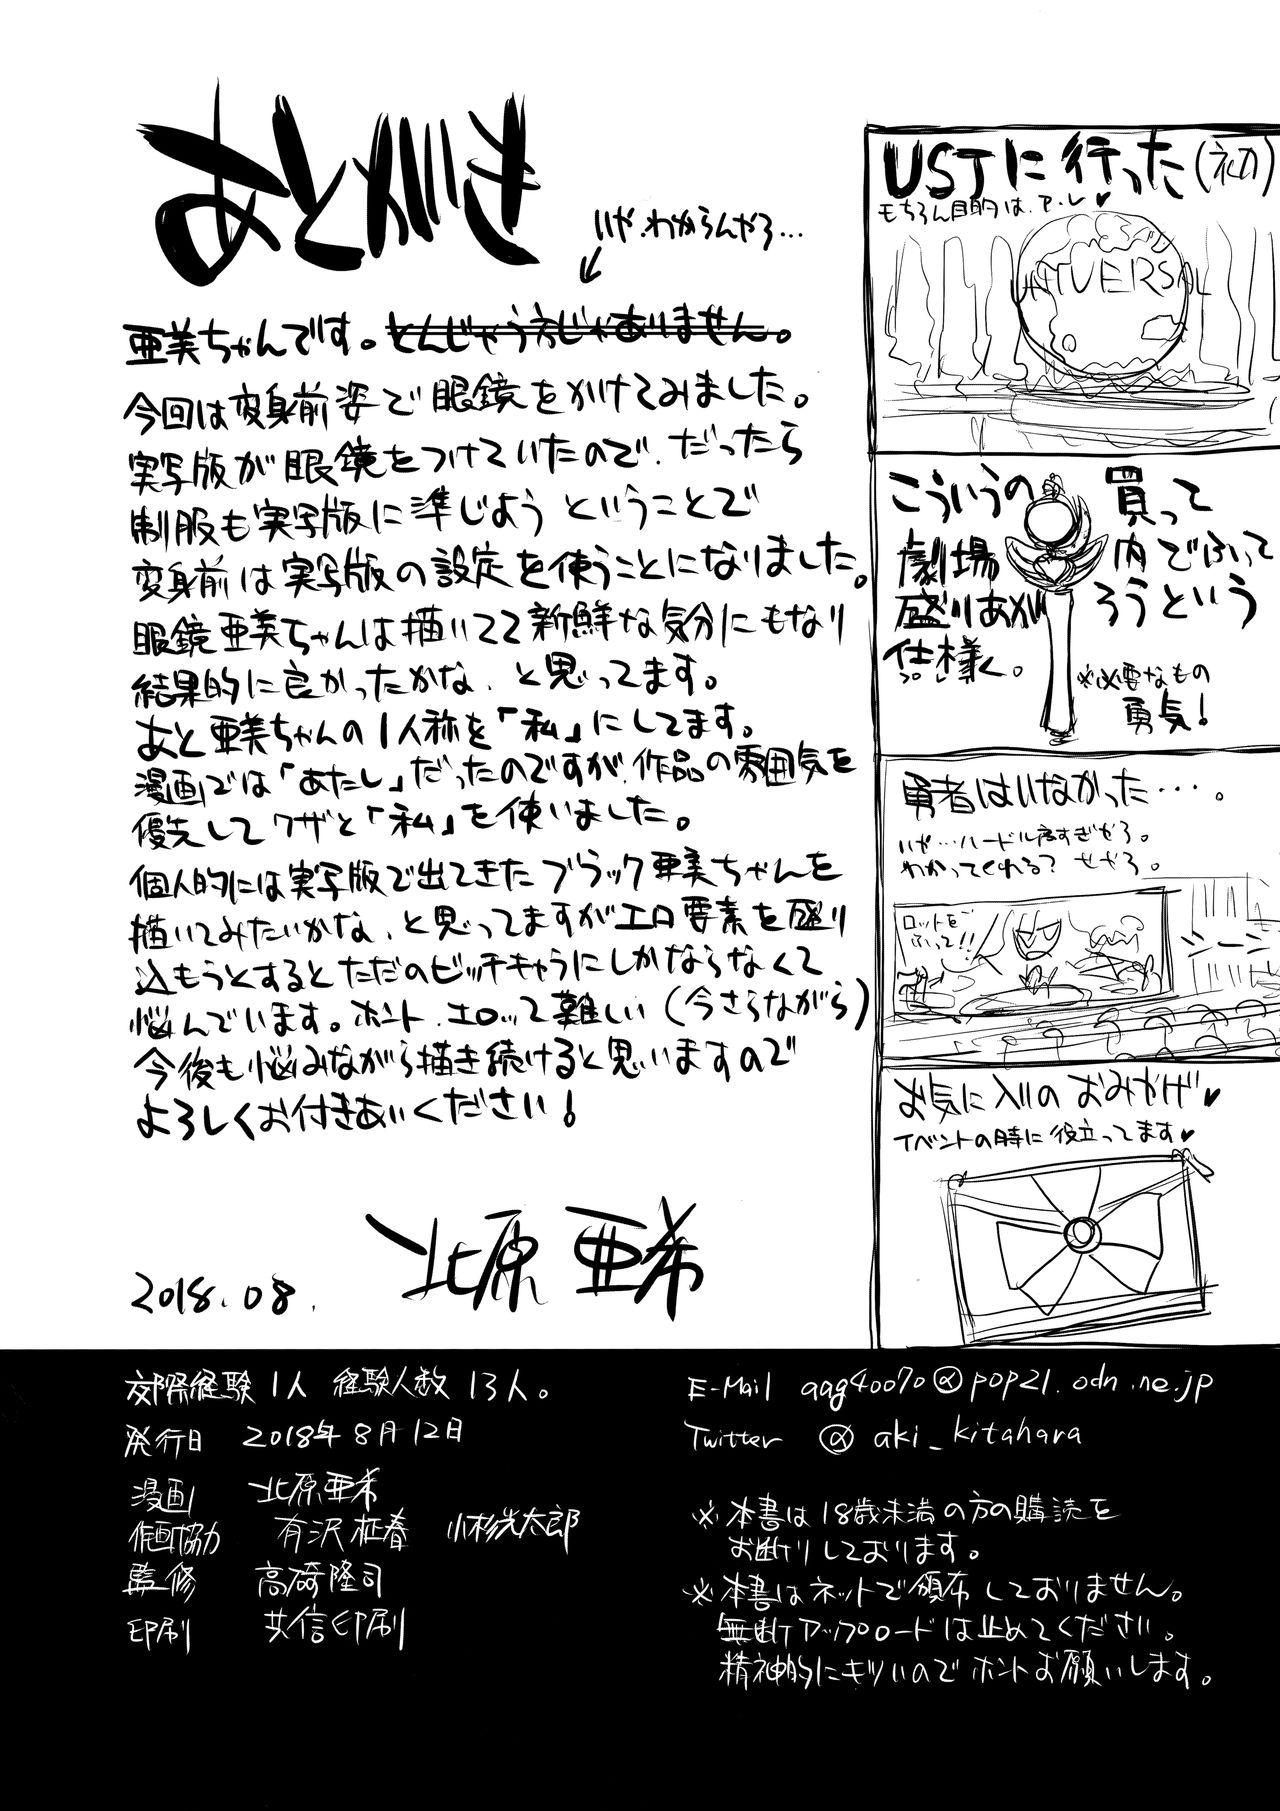 あとがき
いや、わからんやろ…
亜美ちゃんです。とんじゃう方じゃありません。
今回は変身前姿で眼鏡をかけてみました。
実写版が眼鏡をつけていたので、だったら
制服も実写版に準じようということで
変身前は実写版の設定を使うことになりました。
眼鏡亜美ちゃんは描いてて新鮮な気分にもなり
結果的に良かったかな、と思ってます。
あと亜美ちゃんの1人称を「私」にしてます。
漫画では「あたし」だったのですが、作品の雰囲気を
優先してワザと「私」を使いました。
個人的には実写版で出てきたブラック亜美ちゃんを
描いてみたいかな、と思ってますがエロ要素を盛り
込もうとするとただのビッチキャラにしかならなくて
悩んでいます。ホント、エロって難しい(今さらながら)
今後も悩みながら描き続けると思いますので
よろしくお付きあいください!
2018.08.
北原亜希
USJに行った(初)
もちろん目的は、ア・レ♥
UNIVERSAL
こういうの買って
劇場内でふって
盛りあがろうという
仕様く。
※必要なもの
勇気!
勇者はいなかった…。
いや…ハードル高すぎやろ。
わかってくれる?せやろ。
ロットを
ふって!!
シーン
お気に入りのおみやげ♥
イベントの時に役立ってます♥
交際経験1人 経験人数13人。
発行日 2018年8月12日
漫画 北原亜希
作画協力 有沢柾春 小杉光太郎
監修 高崎隆司
印刷 共信印刷
E-Mail aag40070@pop21.odn.ne.jp
Twitter @aki_kitahara
※本書は18歳未満の方の購読を
お断りしております。
※本書はネットで頒布しておりません。
無断アップロードは止めてください。
精神的にキツいのでホントお願いします。